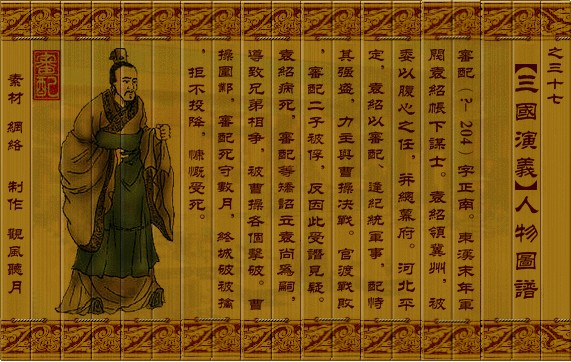 之三十七
【三國演義】人物圖譜
審配（?－204）字正南。東漢末年軍
閥袁紹帳下謀士。袁紹領冀州，被
委以腹心之任，并總幕府。河北平
定，袁紹以審配、逢紀統軍事，配恃
其強盛，力主與曹操決戰。官渡戰敗
，審配二子被俘，反因此受譖見疑。
袁紹病死，審配等矯詔立袁尚爲嗣，
導致兄弟相爭，被曹操各個擊破。曹
操圍鄴，審配死守數月，終城破被擒
，拒不投降，慷慨受死。
審配
素材 網絡 制作 觀風聽月